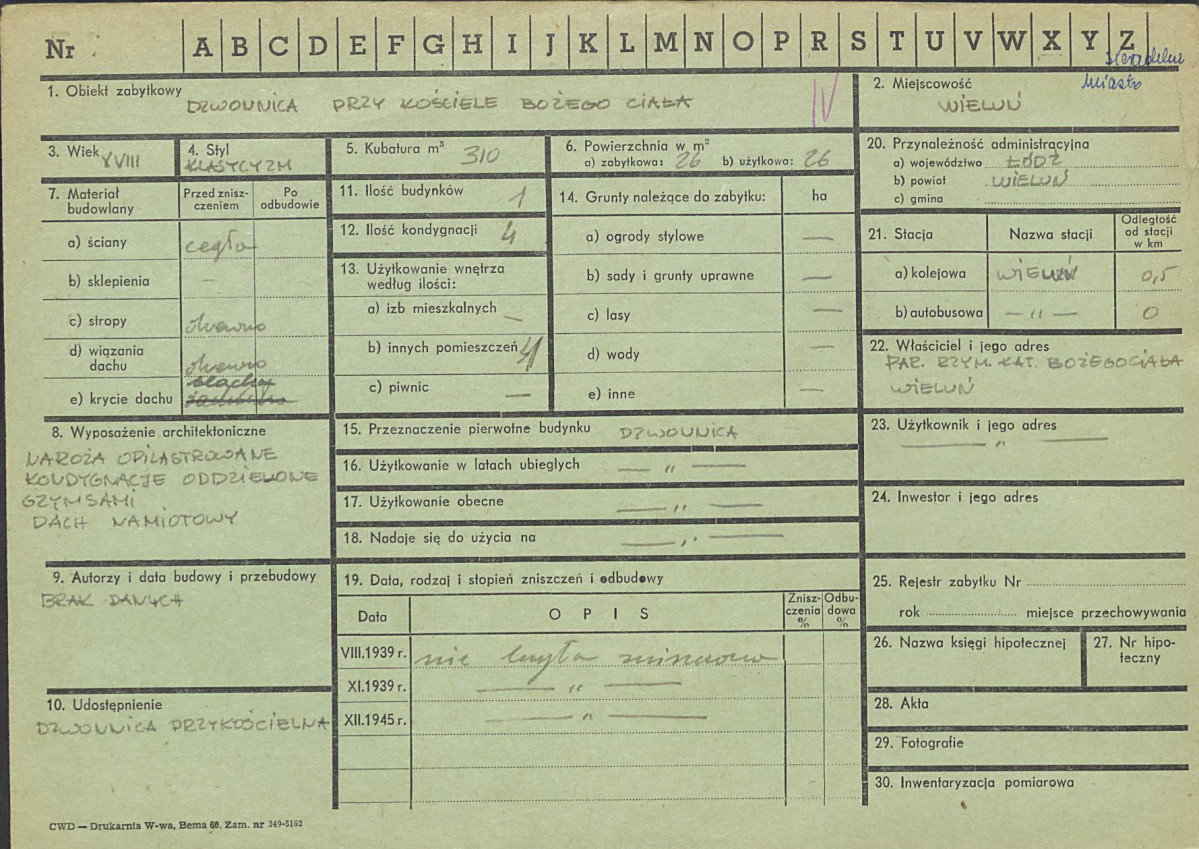 Nr A B C D E F G H I J K L M N O P R S T U V W X Y Z
miasto
1. Obiekt zabytkowy DZWONNICA PRZY KOŚCIELE BOŻEGO CIAŁA IV
2. Miejscowość
WIELUŃ
3. Wiek XVIII
4. Styl
KLASYCYZM
5. Kubatura m³ 310
6. Powierzchnia w m²
a) zabytkowa: 26 b) użytkowa: 26
20. Przynależność administracyjna
a) województwo ŁÓDŹ
b) powiat WIELUŃ
c) gmina
7. Materiał budowlany
Przed zniszczeniem
Po odbudowie
a) ściany cegła
b) sklepienia —
c) stropy drewno
d) wiązania dachu drewno
e) krycie dachu blacha
11. Ilość budynków 1
12. Ilość kondygnacji 4
13. Użytkowanie wnętrza
według ilości:
a) izb mieszkalnych —
b) innych pomieszczeń 4
c) piwnic —
14. Grunty należące do zabytku: ha
a) ogrody stylowe —
b) sady i grunty uprawne —
c) lasy —
d) wody —
e) inne —
21. Stacja Nazwa stacji Odległość od stacji w km
a) kolejowa WIELUŃ 0,5
b) autobusowa — „ — 0
22. Właściciel i jego adres
PAR. RZYM. KAT. BOŻEGO CIAŁA
WIELUŃ
8. Wyposażenie architektoniczne
NAROŻA OPILASTROWANE
KONDYGNACJE ODDZIELONE
GZYMSAMI
DACH NAMIOTOWY
15. Przeznaczenie pierwotne budynku DZWONNICA
16. Użytkowanie w latach ubiegłych — „ —
17. Użytkowanie obecne — „ —
18. Nadaje się do użycia na — „ —
23. Użytkownik i jego adres
— „ —
24. Inwestor i jego adres
9. Autorzy i data budowy i przebudowy
BRAK DANYCH
19. Data, rodzaj i stopień zniszczeń i odbudowy
Data OPIS Zniszczenia % Odbudowa %
VIII.1939 r. nie była zniszczona
XI.1939 r. — „ —
XII.1945 r. — „ —
25. Rejestr zabytku Nr
rok miejsce przechowywania
26. Nazwa księgi hipotecznej
27. Nr hipoteczny
10. Udostępnienie
DZWONNICA PRZYKOŚCIELNA
28. Akta
29. Fotografie
30. Inwentaryzacja pomiarowa
CWD — Drukarnia W-wa, Bema 60. Zam. nr 349-5162